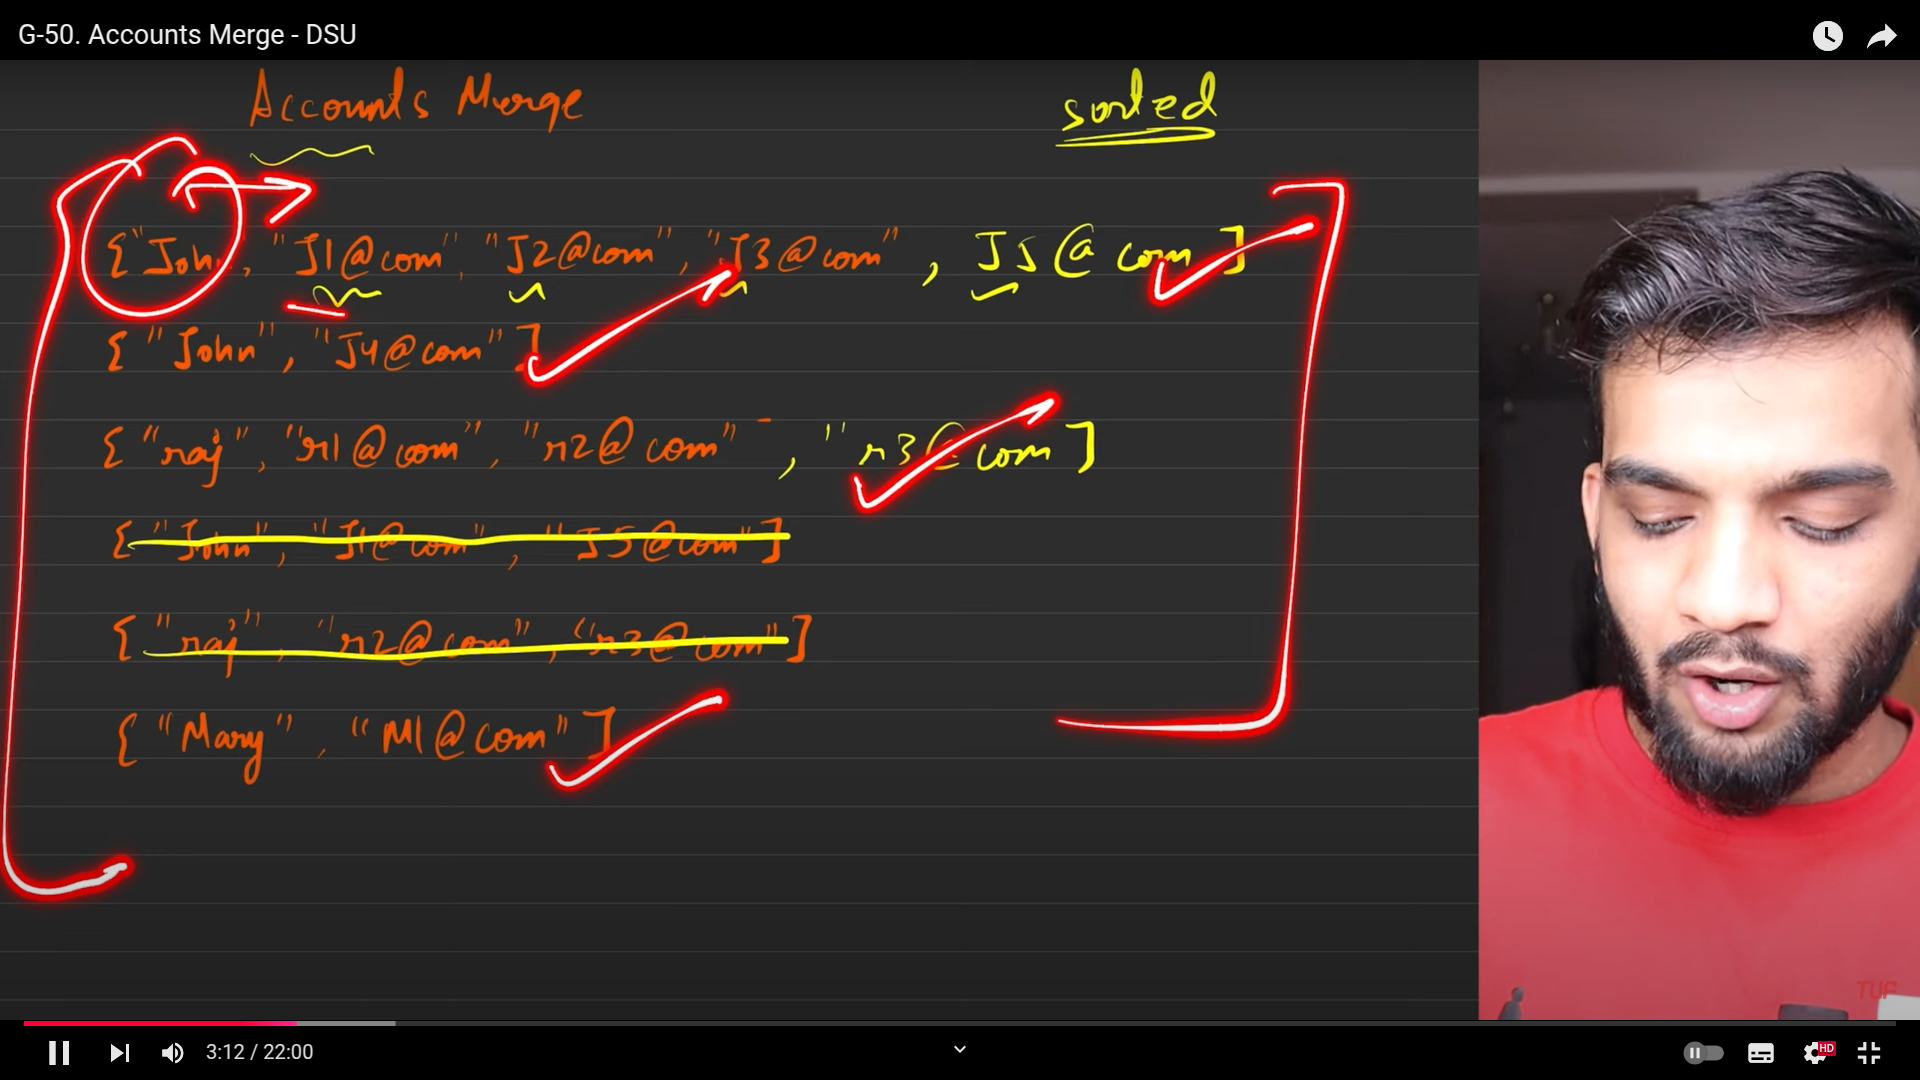 G-50. Accounts Merge - DSU
Accounts Merge
sorted
{"John, "J1@com", "J2@com", "J3@com", J5@com]
{"John", "J4@com"]
{"raj", "r1@com", "r2@com", "r3@com]
{"John", "J1@com", "J5@com"]
{"raj", "r2@com", "r3@com"]
{"Mary", "M1@com"]
TUF
3:12 / 22:00
HD